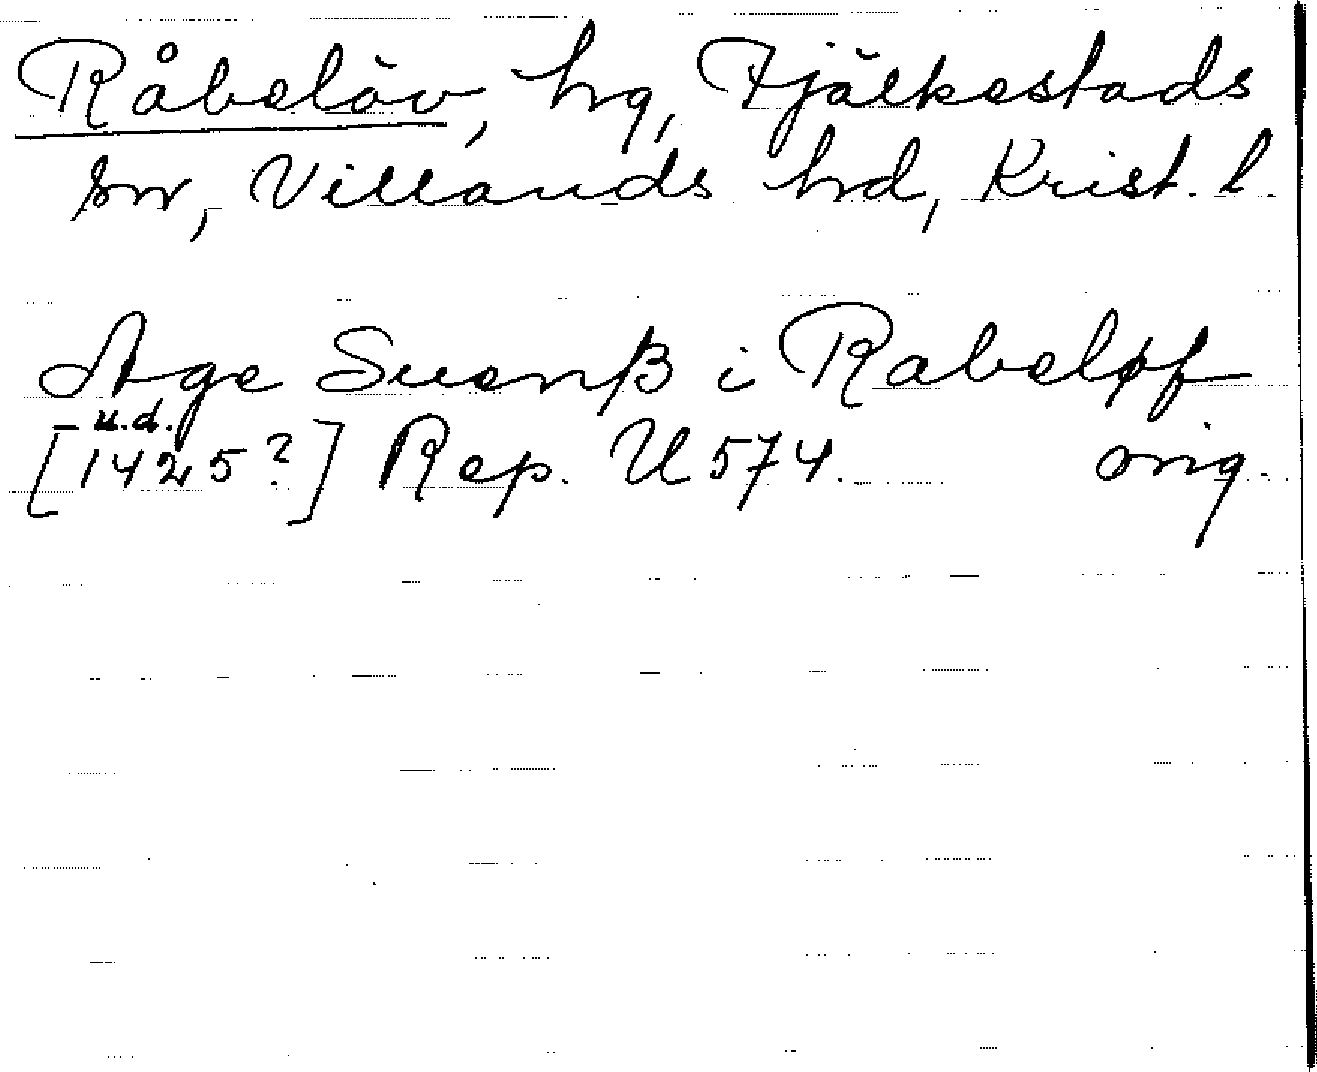 Råbelöv, hg, Fjälkestads
sn, Villands hd, Krist. l.
Age Suenß i Rabeløf
u.d.
[1425?] Rep. U 574. orig.